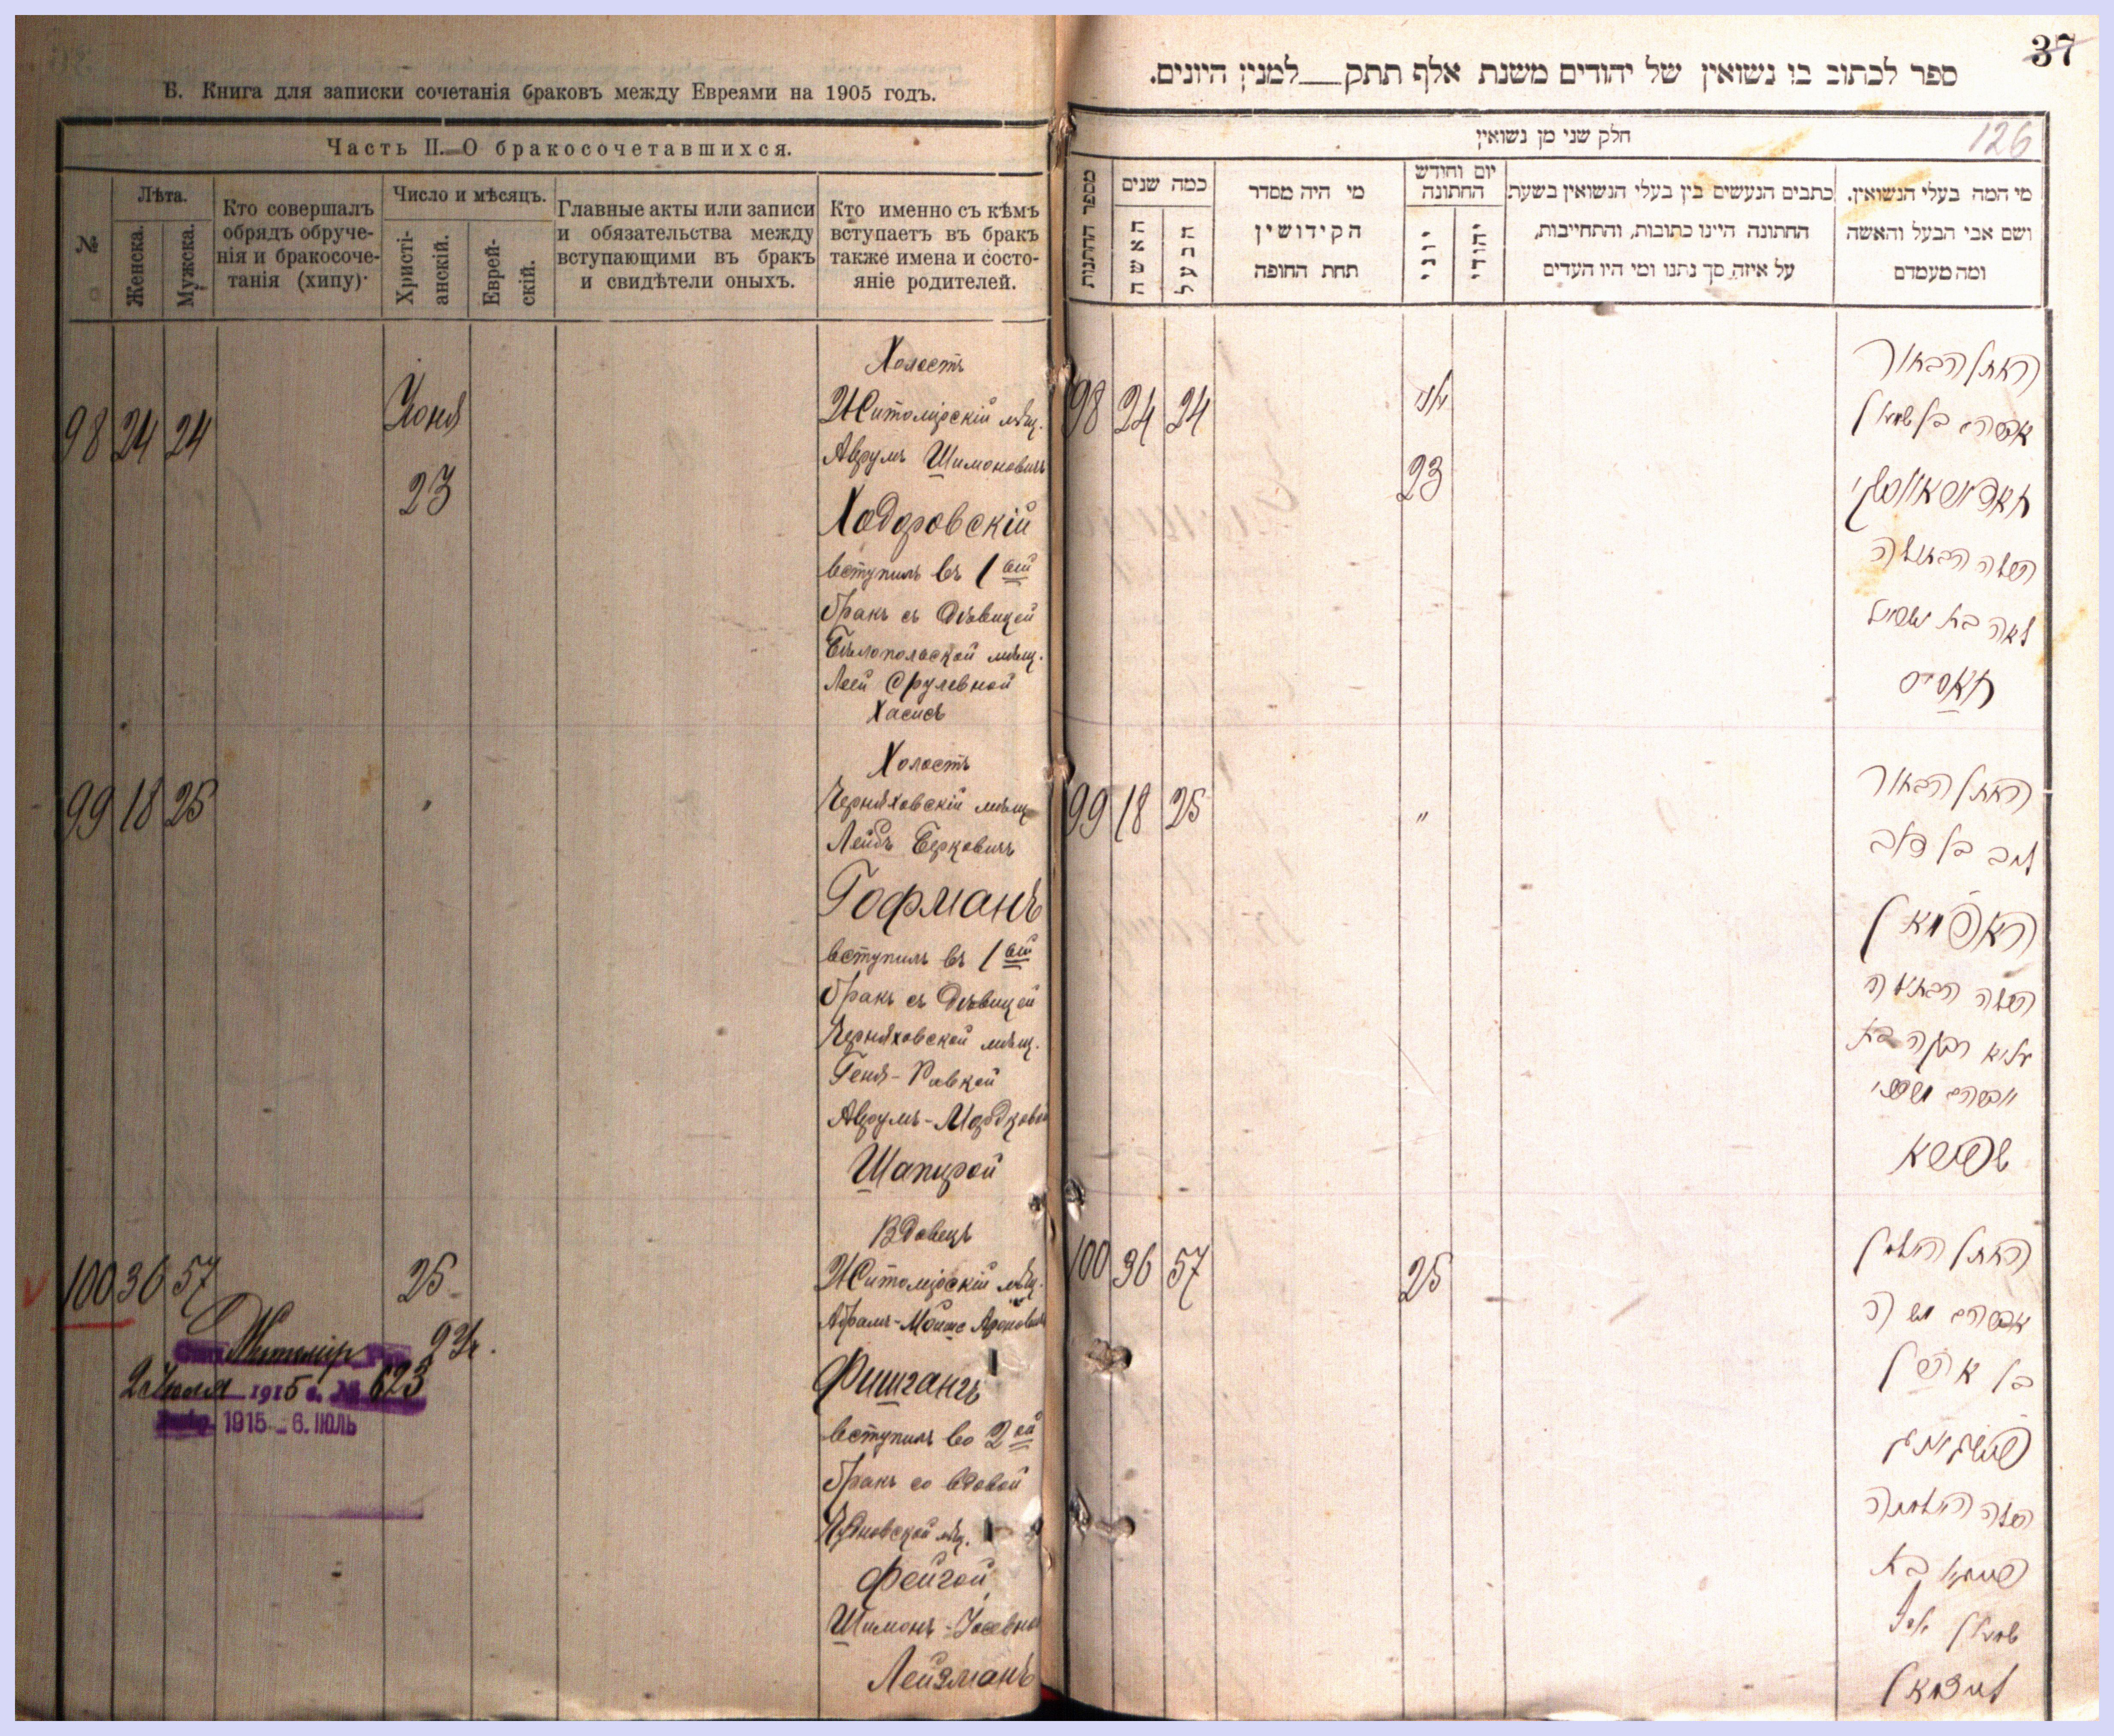 Б. Книга для записки сочетанія браковъ между Евреями на 1905 годъ.
Часть II. О бракосочетавшихся.
№
Лѣта.
Женска.
Мужска.
Кто совершалъ
обрядъ обруче-
нія и бракосоче-
танія (хипу)
Число и мѣсяцъ.
Христі-
анскій.
Еврей-
скій.
Главные акты или записи
и обязательства между
вступающими въ бракъ
и свидѣтели оныхъ.
Кто именно съ кѣмъ
вступаетъ въ бракъ
также имена и состо-
яніе родителей.
98 24 24
Іюня
23
Холостъ
Житомірскій мѣщ.
Аврумъ Шимоновичъ
Ходоровскій
вступилъ въ 1 ый
бракъ съ дѣвицей
Бѣлопольской мѣщ.
Леей Срулевной
Хасисъ
99 18 25
Холостъ
Черняховскій мѣщ
Лейбъ Берковичъ
Гофманъ
вступилъ въ 1 ый
бракъ съ дѣвицей
Черняховской мѣщ.
Геня-Ривкой
Аврумъ-Мордковой
Шапирой
100 36 57
25
Вдовецъ
Житомірскій мѣщ.
Абрамъ-Мойше Ароновичъ
Фишгангъ
вступилъ во 2 ой
бракъ со вдовой
мѣщ.
Фейгой
Шимонъ-Іосевной
Лейзманъ
Житомір
2 Іюля 1915 г. № 623
1915 - 6. ІЮЛЬ
37
ספר לכתוב בו נשואין של יהודים משנת אלף תתק למנין היונים.
126
חלק שני מן נשואין
מספר החתנות
כמה שנים
האשה
הבעל
מי היה מסדר
הקידושין
תחת החופה
יום וחודש
החתונה
יוני
יהודי
כתבים הנעשים בין בעלי הנשואין בשעת
החתונה היינו כתובות, והתחייבות,
על איזה סך נתנו ומי היו העדים
מי המה בעלי הנשואין.
ושם אבי הבעל והאשה
ומה מעמדם
98 24 24
יוני
23
החתן הבחור
אברהם בן שמעון
חאדאראווסקי
הכלה הבתולה
לאה בת ישראל
חאסיס
99 18 25
"
החתן הבחור
ליב בן דוב
האפמאן
הכלה הבתולה
רבקה בת
אברהם מרדכי
שפירא
100 36 57
25
החתן האלמן
אברהם משה
בן אהרן
פישגאנג
הכלה האלמנה
פייגא בת
שמעון יוסף
לייזמאן